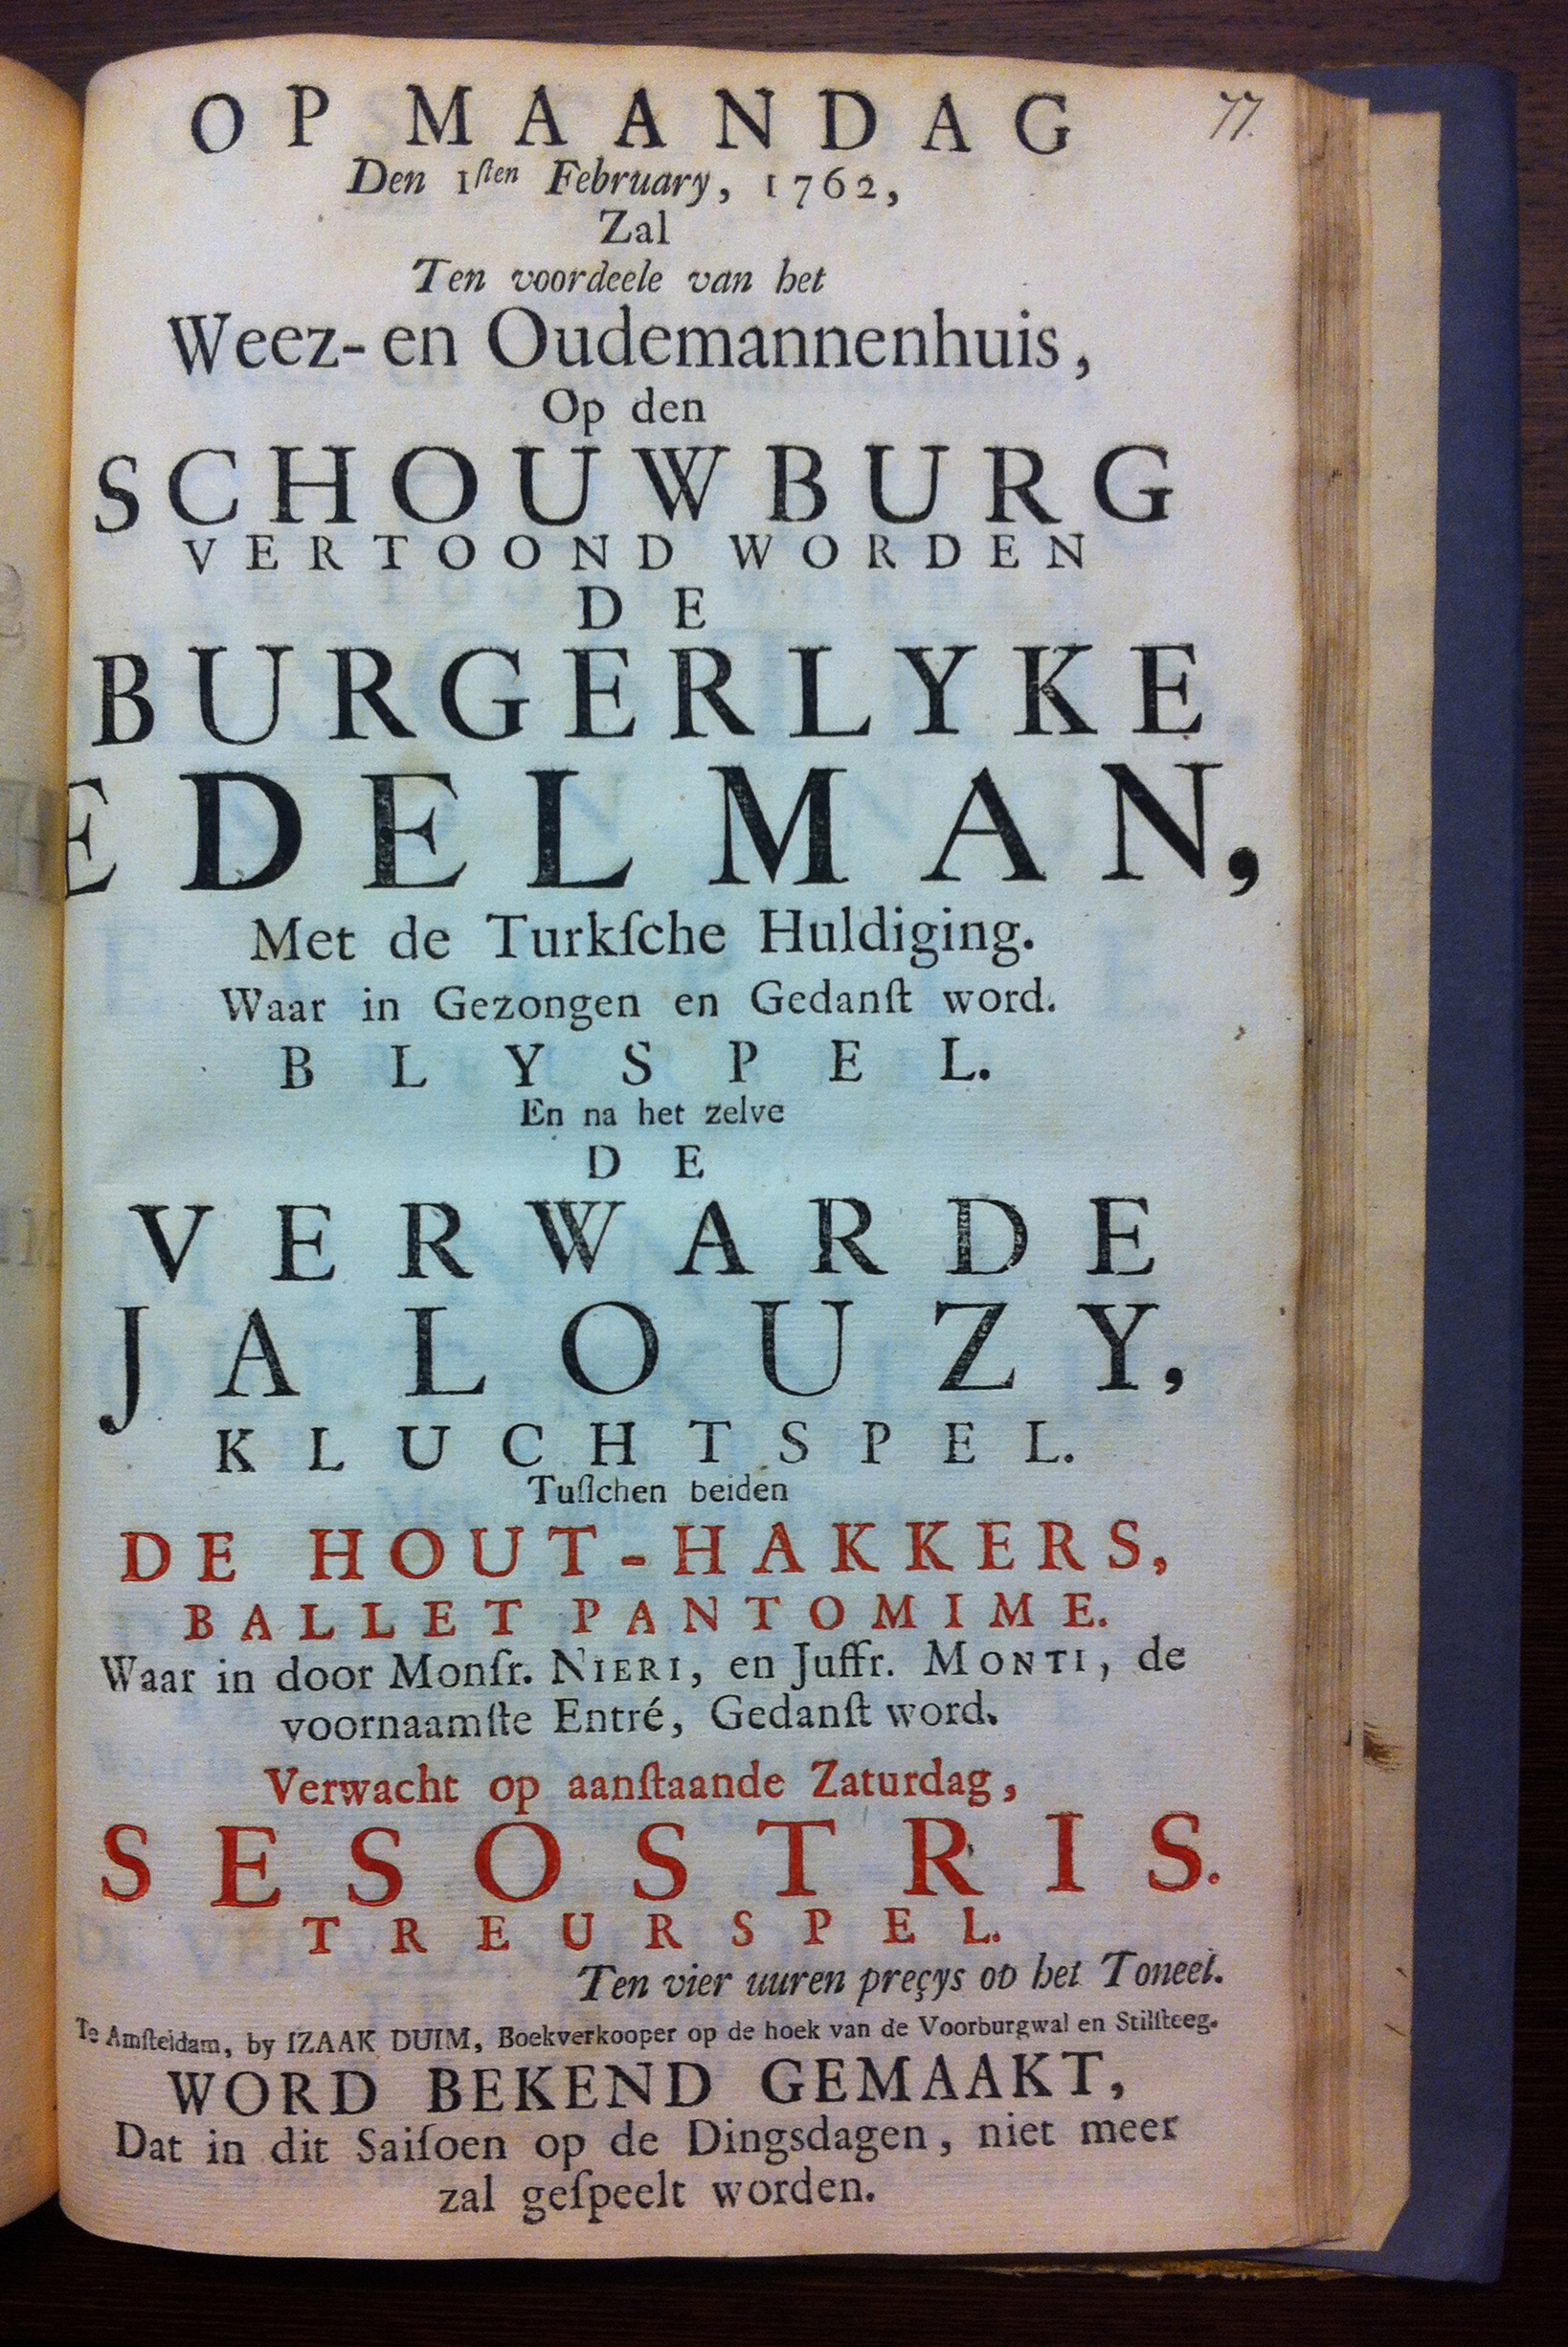 77.
OP MAANDAG
Den 1ſten February, 1762,
Zal
Ten voordeele van het
Weez- en Oudemannenhuis,
Op den
SCHOUWBURG
VERTOOND WORDEN
DE
BURGERLYKE
EDELMAN,
Met de Turkſche Huldiging.
Waar in Gezongen en Gedanſt word.
BLYSPEL.
En na het zelve
DE
VERWARDE
JALOUZY,
KLUCHTSPEL.
Tuſſchen beiden
DE HOUT-HAKKERS,
BALLET PANTOMIME.
Waar in door Monſr. NIERI, en Juffr. MONTI, de
voornaamſte Entré, Gedanſt word.
Verwacht op aanſtaande Zaturdag,
SESOSTRIS.
TREURSPEL.
Ten vier uuren preçys op het Toneel.
Te Amſteldam, by IZAAK DUIM, Boekverkooper op de hoek van de Voorburgwal en Stilſteeg.
WORD BEKEND GEMAAKT,
Dat in dit Saiſoen op de Dingsdagen, niet meer
zal geſpeelt worden.